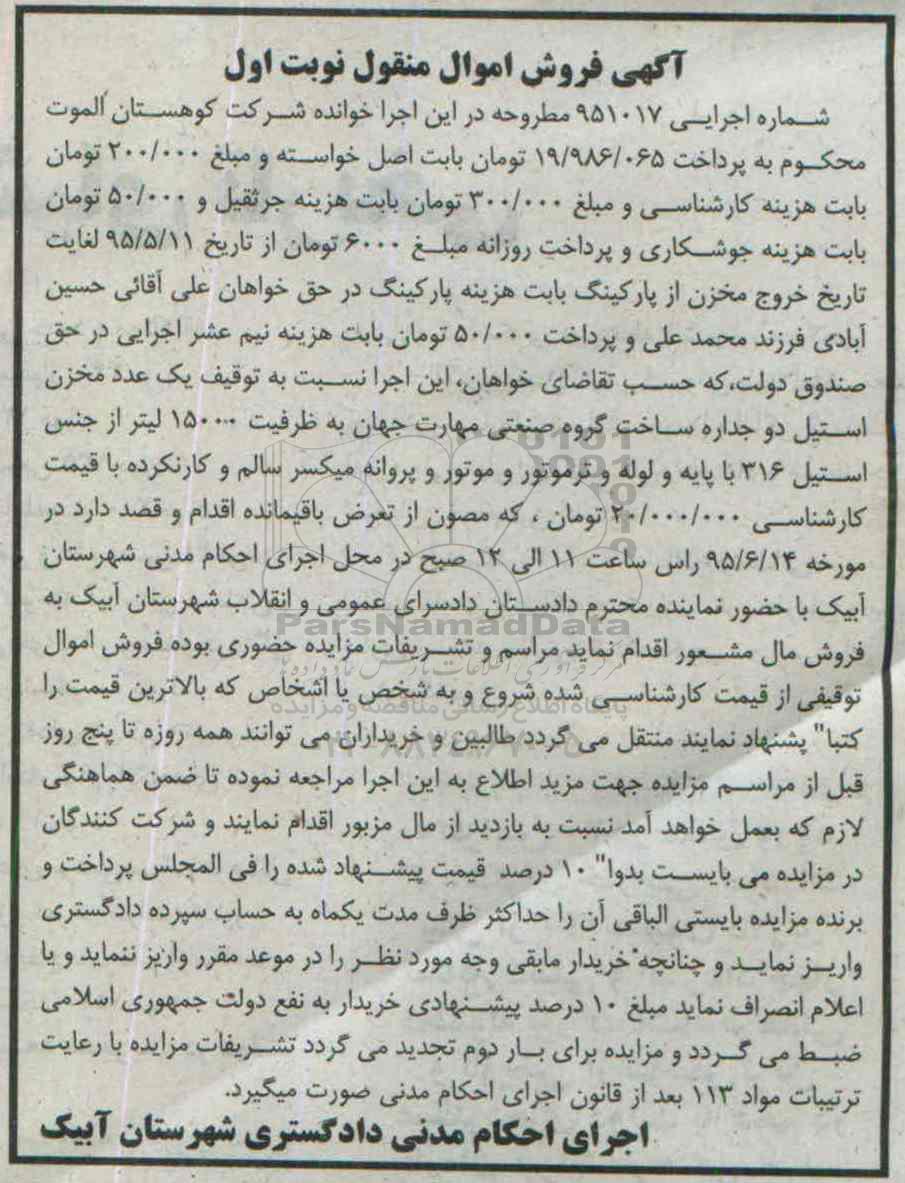 آگهی فروش اموال منقول نوبت اول
شماره اجرایی ۹۵۱۰۱۷ مطروحه در این اجرا خوانده شرکت کوهستان الموت
محکوم به پرداخت ۱۹/۹۸۶/۰۶۵ تومان بابت اصل خواسته و مبلغ ۲۰۰/۰۰۰ تومان
بابت هزینه کارشناسی و مبلغ ۳۰۰/۰۰۰ تومان بابت هزینه جرثقیل و ۵۰/۰۰۰ تومان
بابت هزینه جوشکاری و پرداخت روزانه مبلغ ۶۰۰۰ تومان از تاریخ ۹۵/۵/۱۱ لغایت
تاریخ خروج مخزن از پارکینگ بابت هزینه پارکینگ در حق خواهان علی آقائی حسین
آبادی فرزند محمد علی و پرداخت ۵۰/۰۰۰ تومان بابت هزینه نیم عشر اجرایی در حق
صندوق دولت،که حسب تقاضای خواهان، این اجرا نسبت به توقیف یک عدد مخزن
استیل دو جداره ساخت گروه صنعتی مهارت جهان به ظرفیت ۱۵۰۰۰ لیتر از جنس
استیل ۳۱۶ با پایه و لوله و ترموتور و موتور و پروانه میکسر سالم و کارنکرده با قیمت
کارشناسی ۲۰/۰۰۰/۰۰۰ تومان ، که مصون از تعرض باقیمانده اقدام و قصد دارد در
مورخه ۹۵/۶/۱۴ راس ساعت ۱۱ الی ۱۲ صبح در محل اجرای احکام مدنی شهرستان
آبیک با حضور نماینده محترم دادستان دادسرای عمومی و انقلاب شهرستان آبیک به
ParsNamadData
فروش مال مشعور اقدام نماید مراسم و تشریفات مزایده حضوری بوده فروش اموال
توقیفی از قیمت کارشناسی شده شروع و به شخص یا اشخاص که بالاترین قیمت را
پایگاه اطلاع رسانی مناقصه و مزایده
کتبا" پشنهاد نمایند منتقل می گردد طالبین و خریداران می توانند همه روزه تا پنج روز
قبل از مراسم مزایده جهت مزید اطلاع به این اجرا مراجعه نموده تا ضمن هماهنگی
لازم که بعمل خواهد آمد نسبت به بازدید از مال مزبور اقدام نمایند و شرکت کنندگان
در مزایده می بایست بدوا" ۱۰ درصد قیمت پیشنهاد شده را فی المجلس پرداخت و
برنده مزایده بایستی الباقی آن را حداکثر ظرف مدت یکماه به حساب سپرده دادگستری
واریز نماید و چنانچه خریدار مابقی وجه مورد نظر را در موعد مقرر واریز ننماید و یا
اعلام انصراف نماید مبلغ ۱۰ درصد پیشنهادی خریدار به نفع دولت جمهوری اسلامی
ضبط می گردد و مزایده برای بار دوم تجدید می گردد تشریفات مزایده با رعایت
ترتیبات مواد ۱۱۳ بعد از قانون اجرای احکام مدنی صورت میگیرد.
اجرای احکام مدنی دادگستری شهرستان آبیک